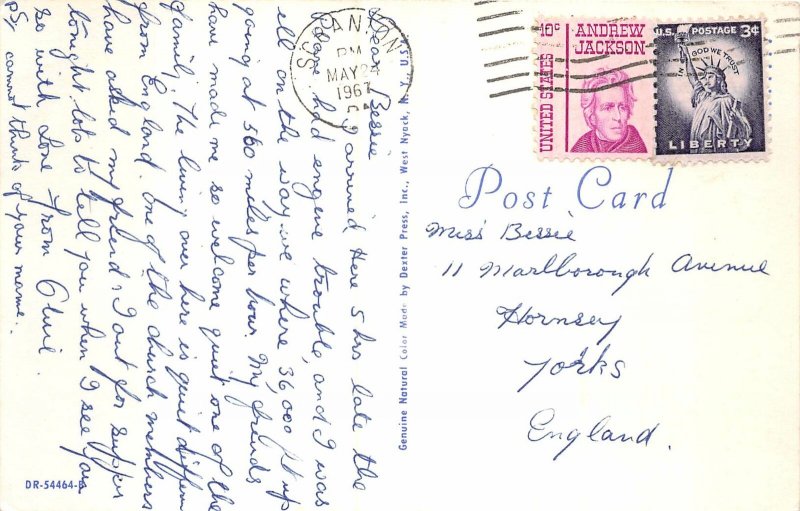 Dear Bessie
I arrived Here 5 hrs late the
plane had engine trouble, and I was
ill on the way, we where 36,000 ft up
going at 560 miles per hour. My freinds
have made me so welcome quiet one of the
family. The living over here is quiet differn
from England. One of the church members
have asked my freind & I out for supper
tonight, lots to tell you when I see you
so with Love from
PS, cannot think of your name.
SC ANTON
PM
MAY 24
1967
10c ANDREW
JACKSON
UNITED STATES
U.S. POSTAGE 3¢
IN GOD WE TRUST
LIBERTY
Post Card
Miss Bessie
11 Marlborough Avenue
Hornsey
Yorks
England.
Genuine Natural Color Made by Dexter Press, Inc., West Nyack, N. Y. U
DR-54464-B